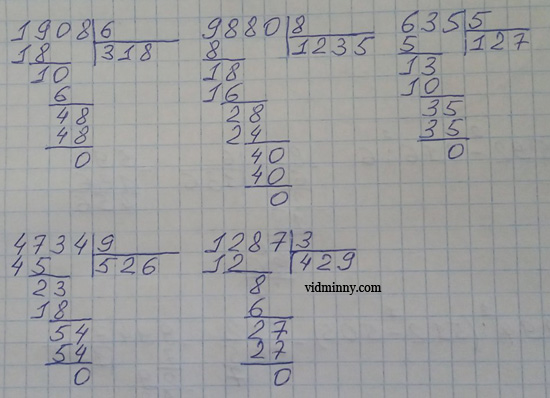 1908 6
18 318
10
6
48
48
0
9880 8
8 1235
18
16
28
24
40
40
0
635 5
5 127
13
10
35
35
0
4734 9
45 526
23
18
54
54
0
1287 3
12 429
8
6
27
27
0
vidminny.com